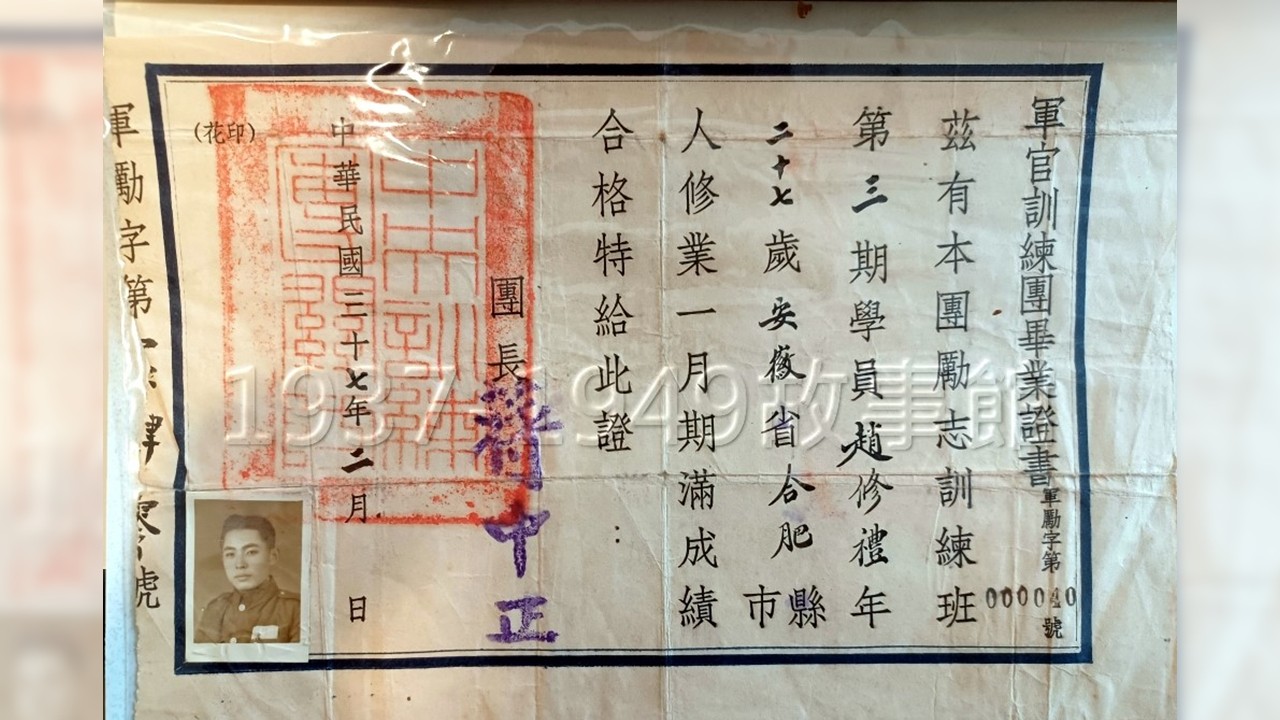 軍官訓練團畢業證書
軍勵字第000040號
茲有本團勵志訓練班
第三期學員趙修禮年
二十七歲安徽省合肥縣市
人修業一月期滿成績
合格特給此證：
團長蔣中正
中華民國三十七年二月 日
(印花)
軍勵字第
號
1937-1949故事館